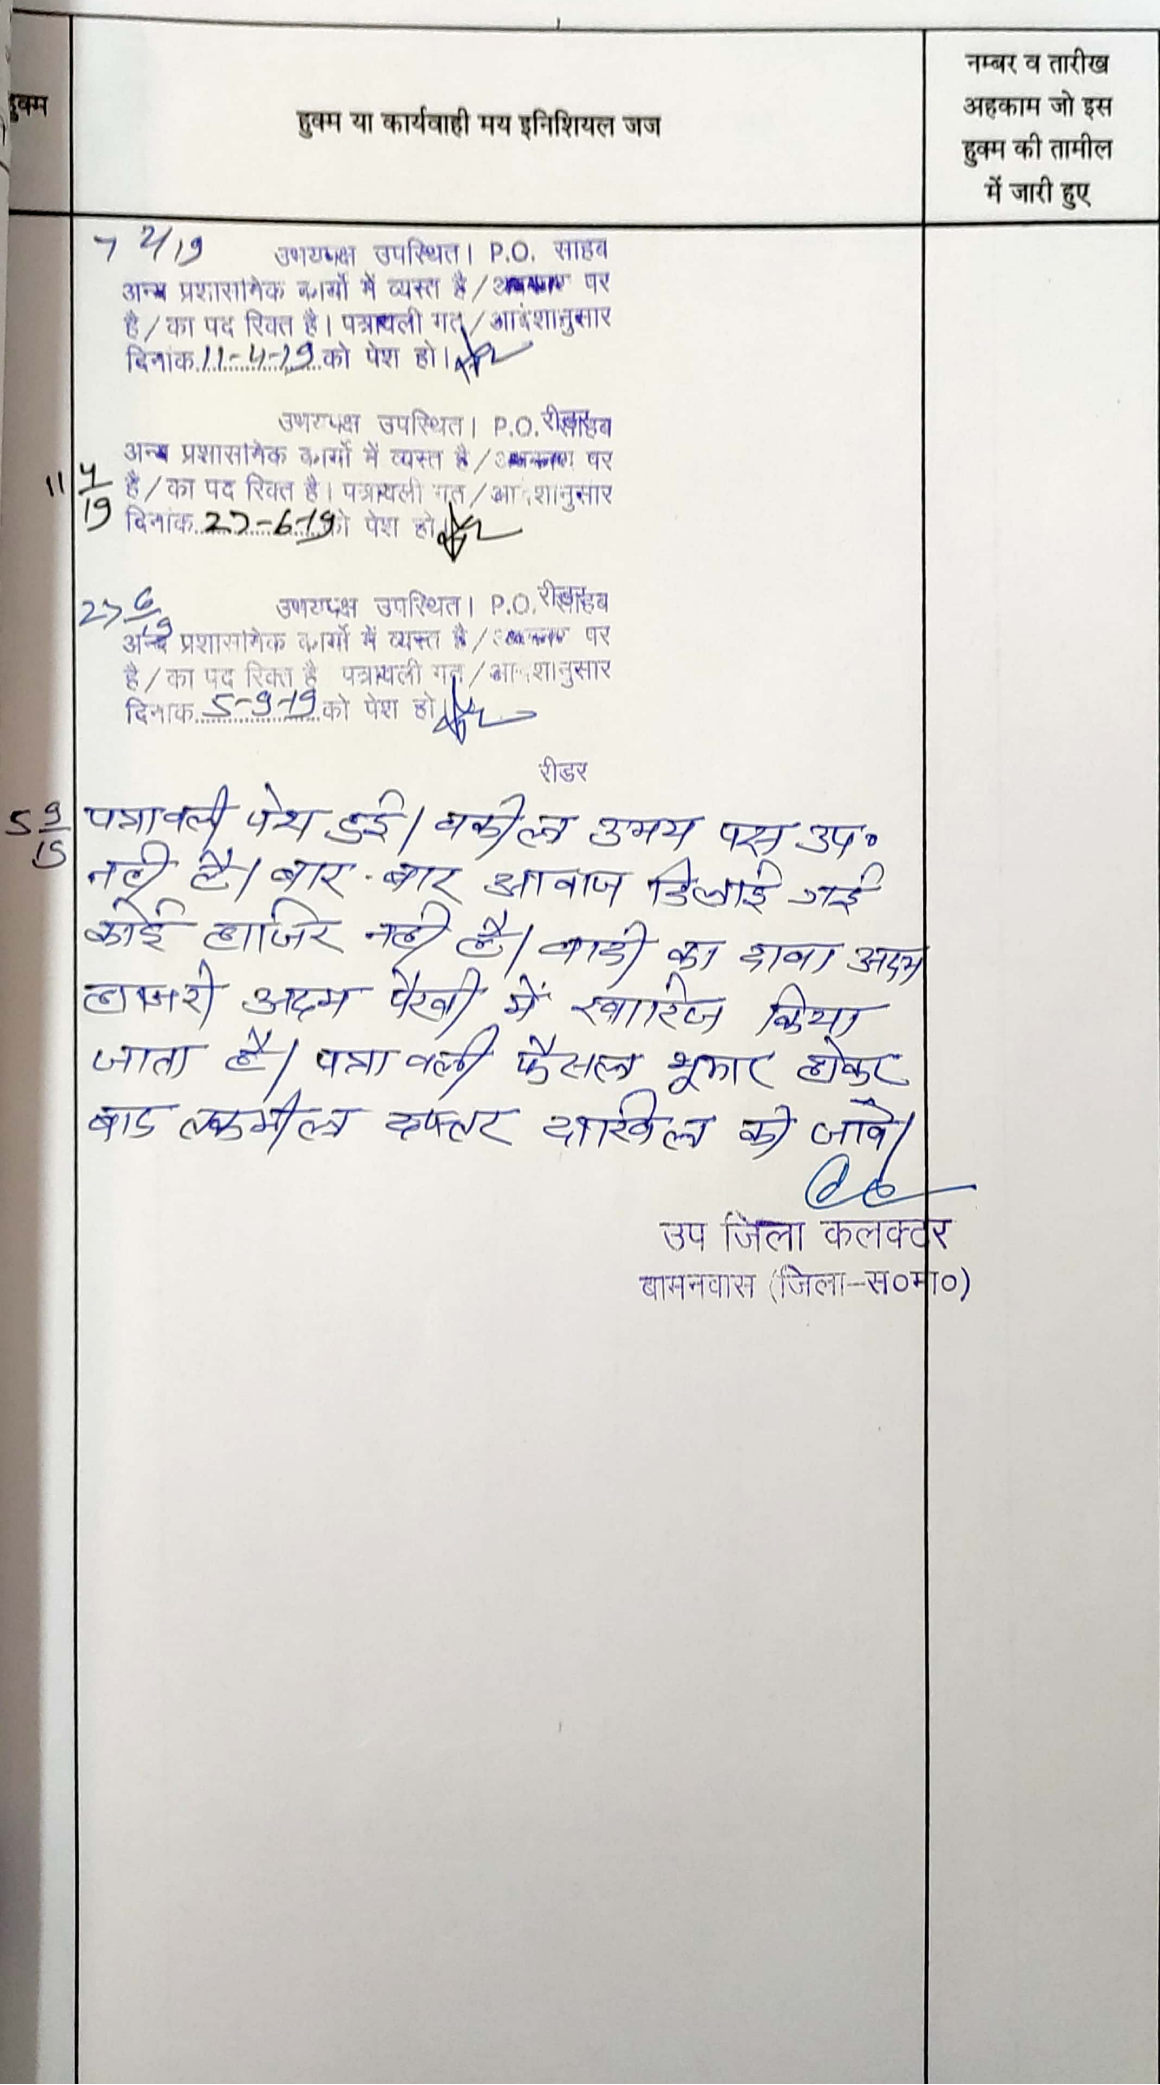 हुक्म
हुक्म या कार्यवाही मय इनिशियल जज
नम्बर व तारीख
अहकाम जो इस
हुक्म की तामील
में जारी हुए
7 2/19 उभयपक्ष उपस्थित। P.O. साहब
अन्य प्रशासनिक कार्यो में व्यस्त है / पर
है / का पद रिक्त है। पत्रावली गत / आदेशानुसार
दिनांक 11-4-19 को पेश हो।
रीडर
उभयपक्ष उपस्थित। P.O. साहब
अन्य प्रशासनिक कार्यो में व्यस्त है / पर
11 4/19 है / का पद रिक्त है। पत्रावली गत / आदेशानुसार
दिनांक 27-6-19 को पेश हो
रीडर
27 6/19 उभयपक्ष उपस्थित। P.O. साहब
अन्य प्रशासनिक कार्यो में व्यस्त है / पर
है / का पद रिक्त है पत्रावली गत / आदेशानुसार
दिनांक 5-9-19 को पेश हो
रीडर
5 9/19 पत्रावली पेश हुई। वकील उभय पक्ष उप०
नही है। बार-बार आवाज दिलाई गई
कोई हाजिर नही है। वादी का दावा अदम
हाजरी अदम पैरवी में खारिज किया
जाता है। पत्रावली फैसल शुमार होकर
बाद तकमील दफ्तर दाखिल की जावे।
उप जिला कलक्टर
बामनवास (जिला-स०मा०)